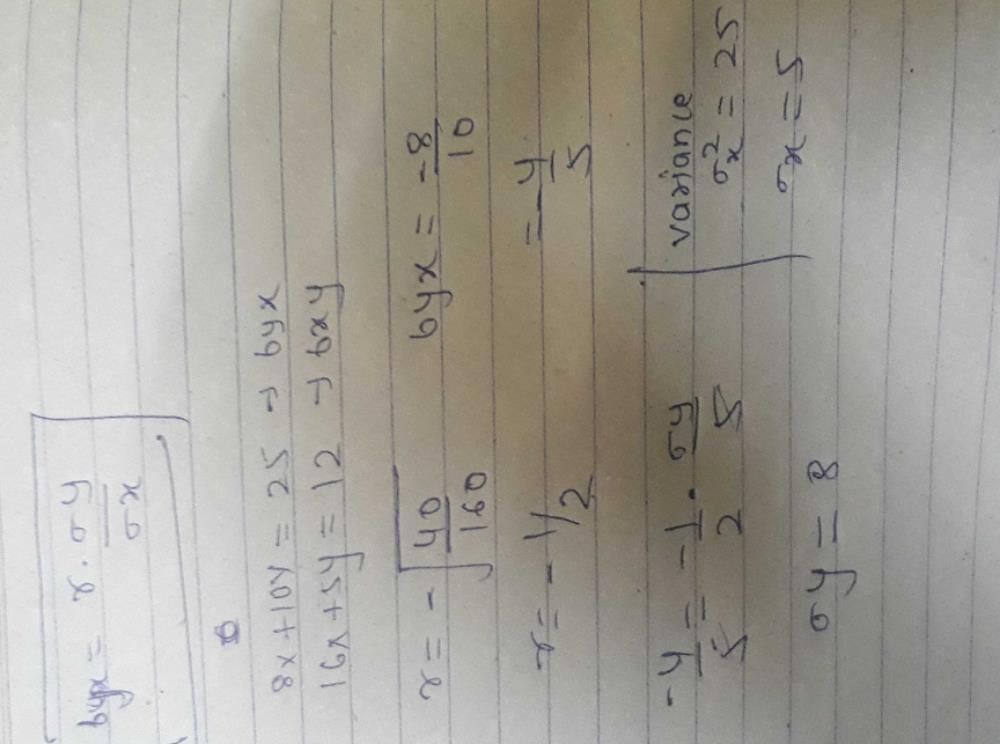 byx = r . σy / σx
8x + 10y = 25 → byx
16x + 5y = 12 → bxy
r = - √40/160 byx = -8/10
r = - 1/2 = -4/5
-4/5 = -1/2 . σy/5 variance
σx² = 25
σy = 8 σx = 5